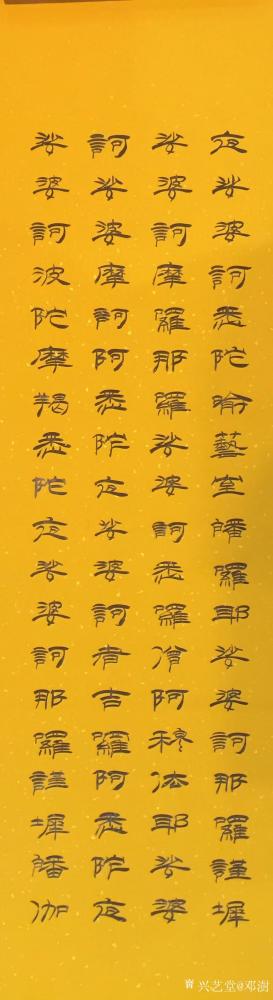 夜娑婆訶悉陀喻藝室皤囉耶娑婆訶那囉謹墀
娑婆訶摩囉那囉娑婆訶悉囉僧阿穆佉耶娑婆
訶娑婆摩訶阿悉陀夜娑婆訶者吉囉阿悉陀夜
娑婆訶波陀摩羯悉陀夜娑婆訶那囉謹墀皤伽
兴艺堂@邓澍